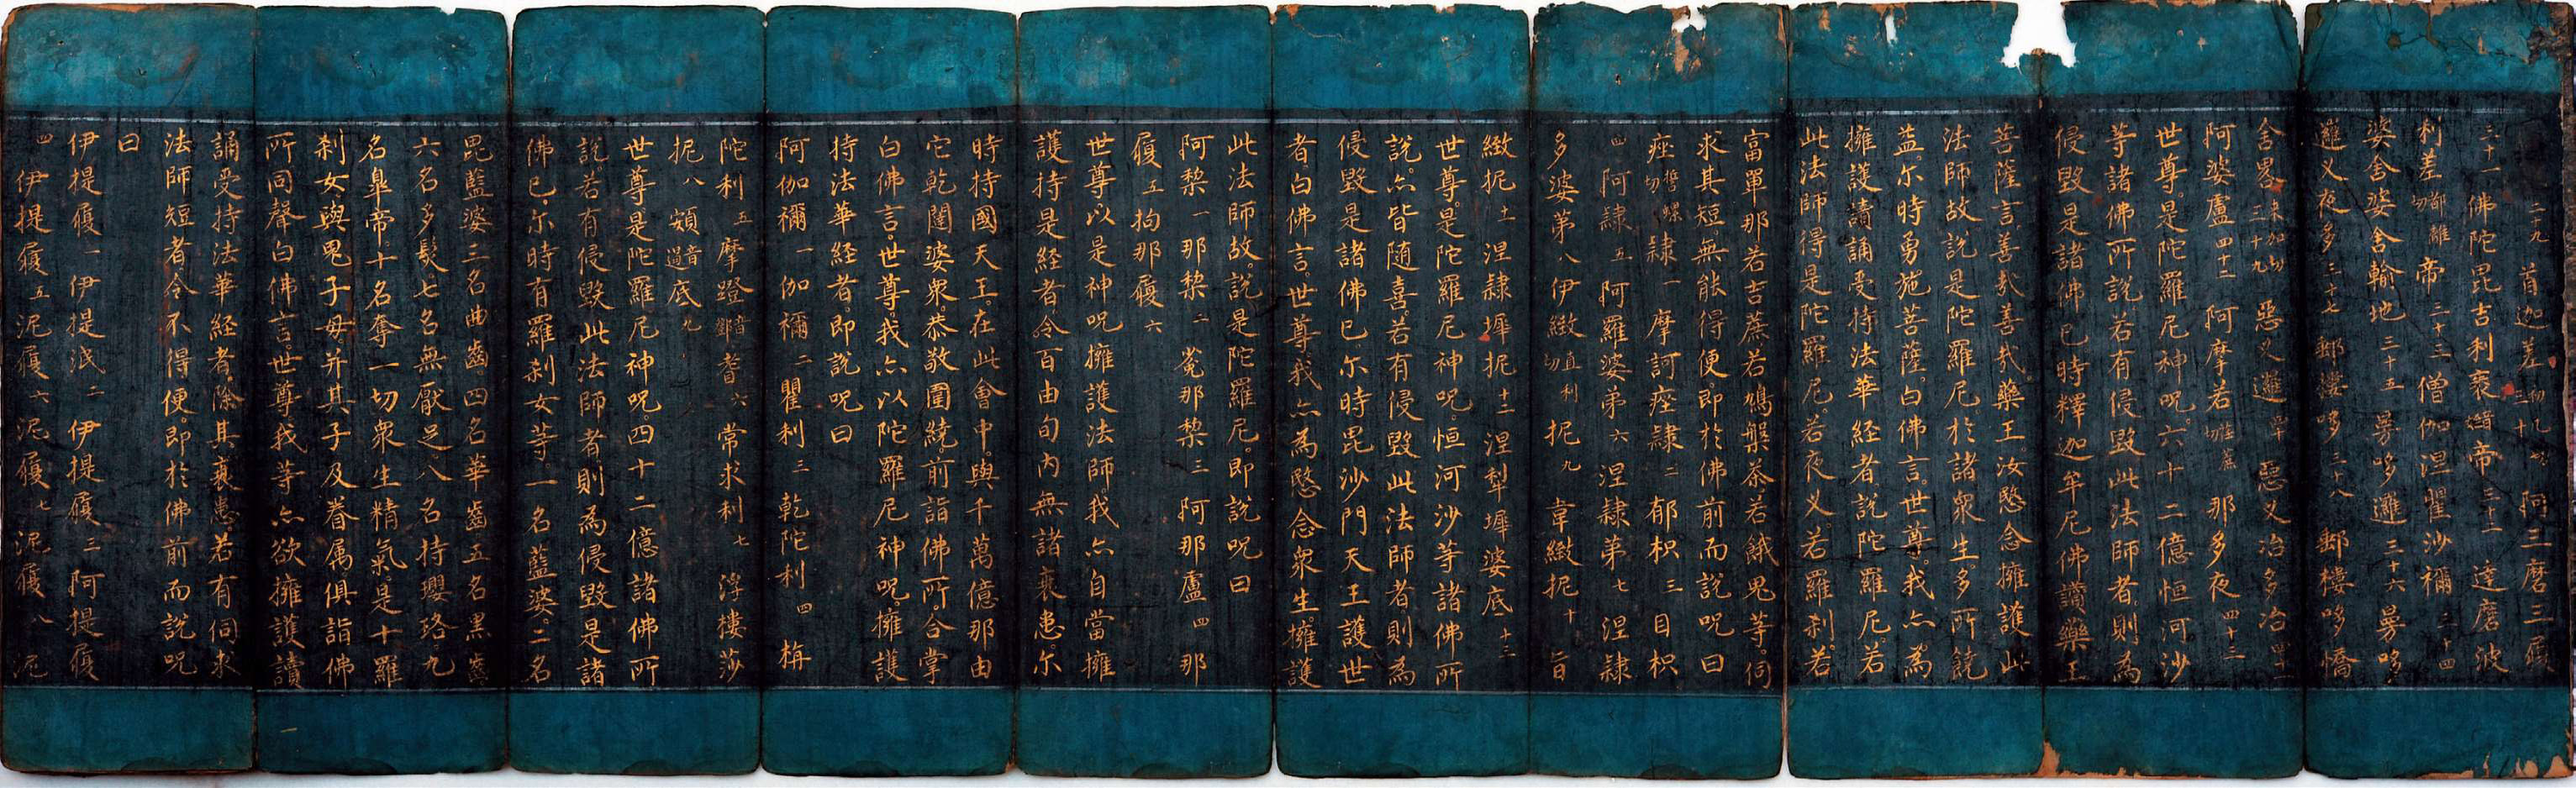 二九 首迦差 初几切 三十 阿三磨三履
三十一 佛陀毘吉利袠 緒 帝 三十二 達磨波
利差 郤離切 帝 三十三 僧伽涅瞿沙禰 三十四
婆舍婆舍輸地 三十五 曼哆邏 三十六 曼哆
邏义夜多 三十七 郵樓哆 三十八 郵樓哆憍
舍略 來加切 三十九 惡义邏 四十 惡义冶多冶 四十一
阿婆盧 四十二 阿摩若 荏蔗切 那多夜 四十三
世尊是陀羅尼神呪六十二億恒河沙
等諸佛所說若有侵毀此法師者則為
侵毀是諸佛已時釋迦牟尼佛讚藥王
菩薩言善哉善哉藥王汝愍念擁護此
法師故說是陀羅尼於諸衆生多所饒
益尔時勇施菩薩白佛言世尊我亦為
擁護讀誦受持法華経者說陀羅尼若
此法師得是陀羅尼若夜义若羅刹若
富單那若吉蔗若鳩槃茶若餓鬼等伺
求其短無能得便即於佛前而說呪曰
痤 誓螺切 隷 一 摩訶痤隷 二 郁枳 三 目枳
四 阿隷 五 阿羅婆弟 六 涅隷第 七 涅隷
多婆第 八 伊緻 直利切 抳 九 韋緻抳 十 旨
緻抳 十一 涅隷墀抳 十二 涅犁墀婆底 十三
世尊是陀羅尼神呪恒河沙等諸佛所
說亦皆随喜若有侵毀此法師者則為
侵毀是諸佛已尔時毘沙門天王護世
者白佛言世尊我亦為愍念衆生擁護
此法師故說是陀羅尼即說呪曰
阿犂 一 那犂 二 㝹那犂 三 阿那盧 四 那
履 五 拘那履 六
世尊以是神呪擁護法師我亦自當擁
護持是経者令百由旬内無諸衰患尓
時持國天王在此會中與千萬億那由
它乾闥婆衆恭敬圍繞前詣佛所合掌
白佛言世尊我亦以陀羅尼神呪擁護
持法華経者即說呪曰
阿伽禰 一 伽禰 二 瞿利 三 乾陀利 四 栴
陀利 五 摩蹬耆 六 常求利 七 浮樓莎
抳 八 頞底 九
世尊是陀羅尼神呪四十二億諸佛所
說若有侵毀此法師者則為侵毀是諸
佛已尔時有羅刹女等一名藍婆二名
毘藍婆三名曲齒四名華齒五名黒齒
六名多髮七名無厭足八名持瓔珞九
名皐帝十名奪一切衆生精氣是十羅
刹女與鬼子母并其子及眷属俱詣佛
所同聲白佛言世尊我等亦欲擁護讀
誦受持法華経者除其衰患若有伺求
法師短者令不得便即於佛前而說呪
曰
伊提履 一 伊提泯 二 伊提履 三 阿提履
四 伊提履 五 泥履 六 泥履 七 泥履 八 泥